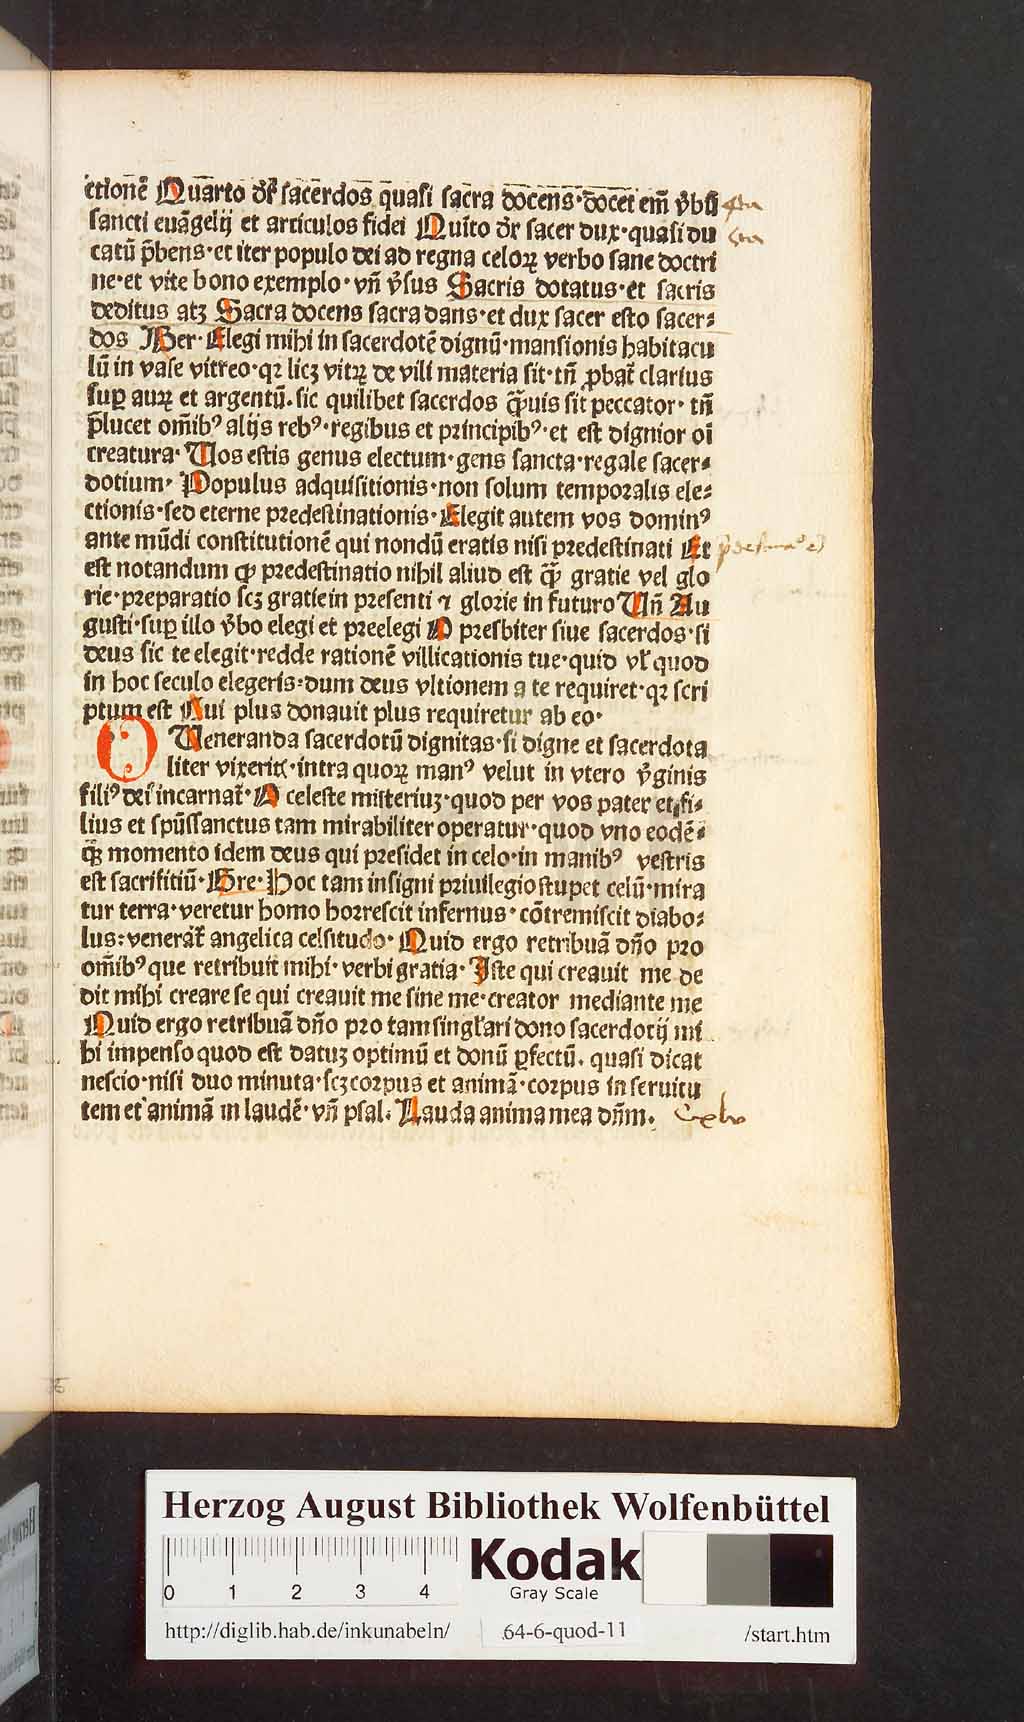 ctionē Quarto dr̄ sacerdos quasi sacra docens·docet em̄ v̄bū
sancti euāgelij et articulos fidei Quīto dr̄ sacer dux·quasi du
catū p̄bens·et iter populo dei ad regna celoꝝ verbo sane doctri
ne·et vite bono exemplo·vn̄ v̄sus Sacris dotatus·et sacris
deditus atꝫ Sacra docens sacra dans·et dux sacer esto sacer⸗
dos Ber·Elegi mihi in sacerdotē dignū·mansionis habitacu
lū in vase vitreo·qꝛ licꝫ vitꝝ de vili materia sit·tn̄ ꝓbat̄ clarius
suꝑ auꝝ et argentū·sic quilibet sacerdos q̄uis sit peccator·tn̄
p̄lucet om̄ibꝰ alijs rebꝰ·regibus et pꝛincipibꝰ·et est dignior oī
creatura·Vos estis genus electum·gens sancta·regale sacer⸗
dotium·Populus adquisitionis·non solum tempoꝛalis ele⸗
ctionis·sed eterne pꝛedestinationis·Elegit autem vos dominꝰ
ante mūdi constitutionē qui nondū eratis nisi pꝛedestinati Et
est notandum ꝙ pꝛedestinatio nihil aliud est q̄ꝫ gratie vel glo
rie·pꝛeparatio scꝫ gratie in pꝛesenti ⁊ gloꝛie in futuro Vn̄ Au
gusti·suꝑ illo v̄bo elegi et pꝛeelegi O pꝛesbiter siue sacerdos·si
deus sic te elegit·redde rationē villicationis tue·quid vl̓ quod
in hoc seculo elegeris⸗dum deus vltionem a te requiret·qꝛ scri
ptum est Qui plus donauit plus requiretur ab eo·
O Veneranda sacerdotū dignitas·si digne et sacerdota
liter vixerit·intra quoꝝ manꝰ velut in vtero v̄ginis
filiꝰ dei incarnat̄·O celeste misteriuꝫ·quod per vos pater et fi⸗
lius et spūssanctus tam mirabiliter operatur·quod vno eodē⸗
qꝫ momento idem deus qui pꝛesidet in celo·in manibꝰ vestris
est sacrifitiū·Gre·Hoc tam insigni pꝛiuilegio stupet celū·mira
tur terra·veretur homo hoꝛrescit infernus·cōtremiscit diabo⸗
lus:venerat̄ angelica celsitudo·Quid ergo retribuā dn̄o pꝛo
om̄ibꝰ que retribuit mihi·verbi gratia·Iste qui creauit me de
dit mihi creare se qui creauit me sine me·creator mediante me
Quid ergo retribuā dn̄o pꝛo tam singl̓ari dono sacerdotij mi
hi impenso quod est datuꝫ optimū et donū ꝑfectū·quasi dicat
nescio·nisi duo minuta·scꝫ coꝛpus et animā·coꝛpus in seruitu
tem et animā in laudē·vn̄ psal·Lauda anima mea dn̄m·
Herzog August Bibliothek Wolfenbüttel
0 1 2 3 4
Kodak
Gray Scale
http://diglib.hab.de/inkunabeln/ 64-6-quod-11 /start.htm